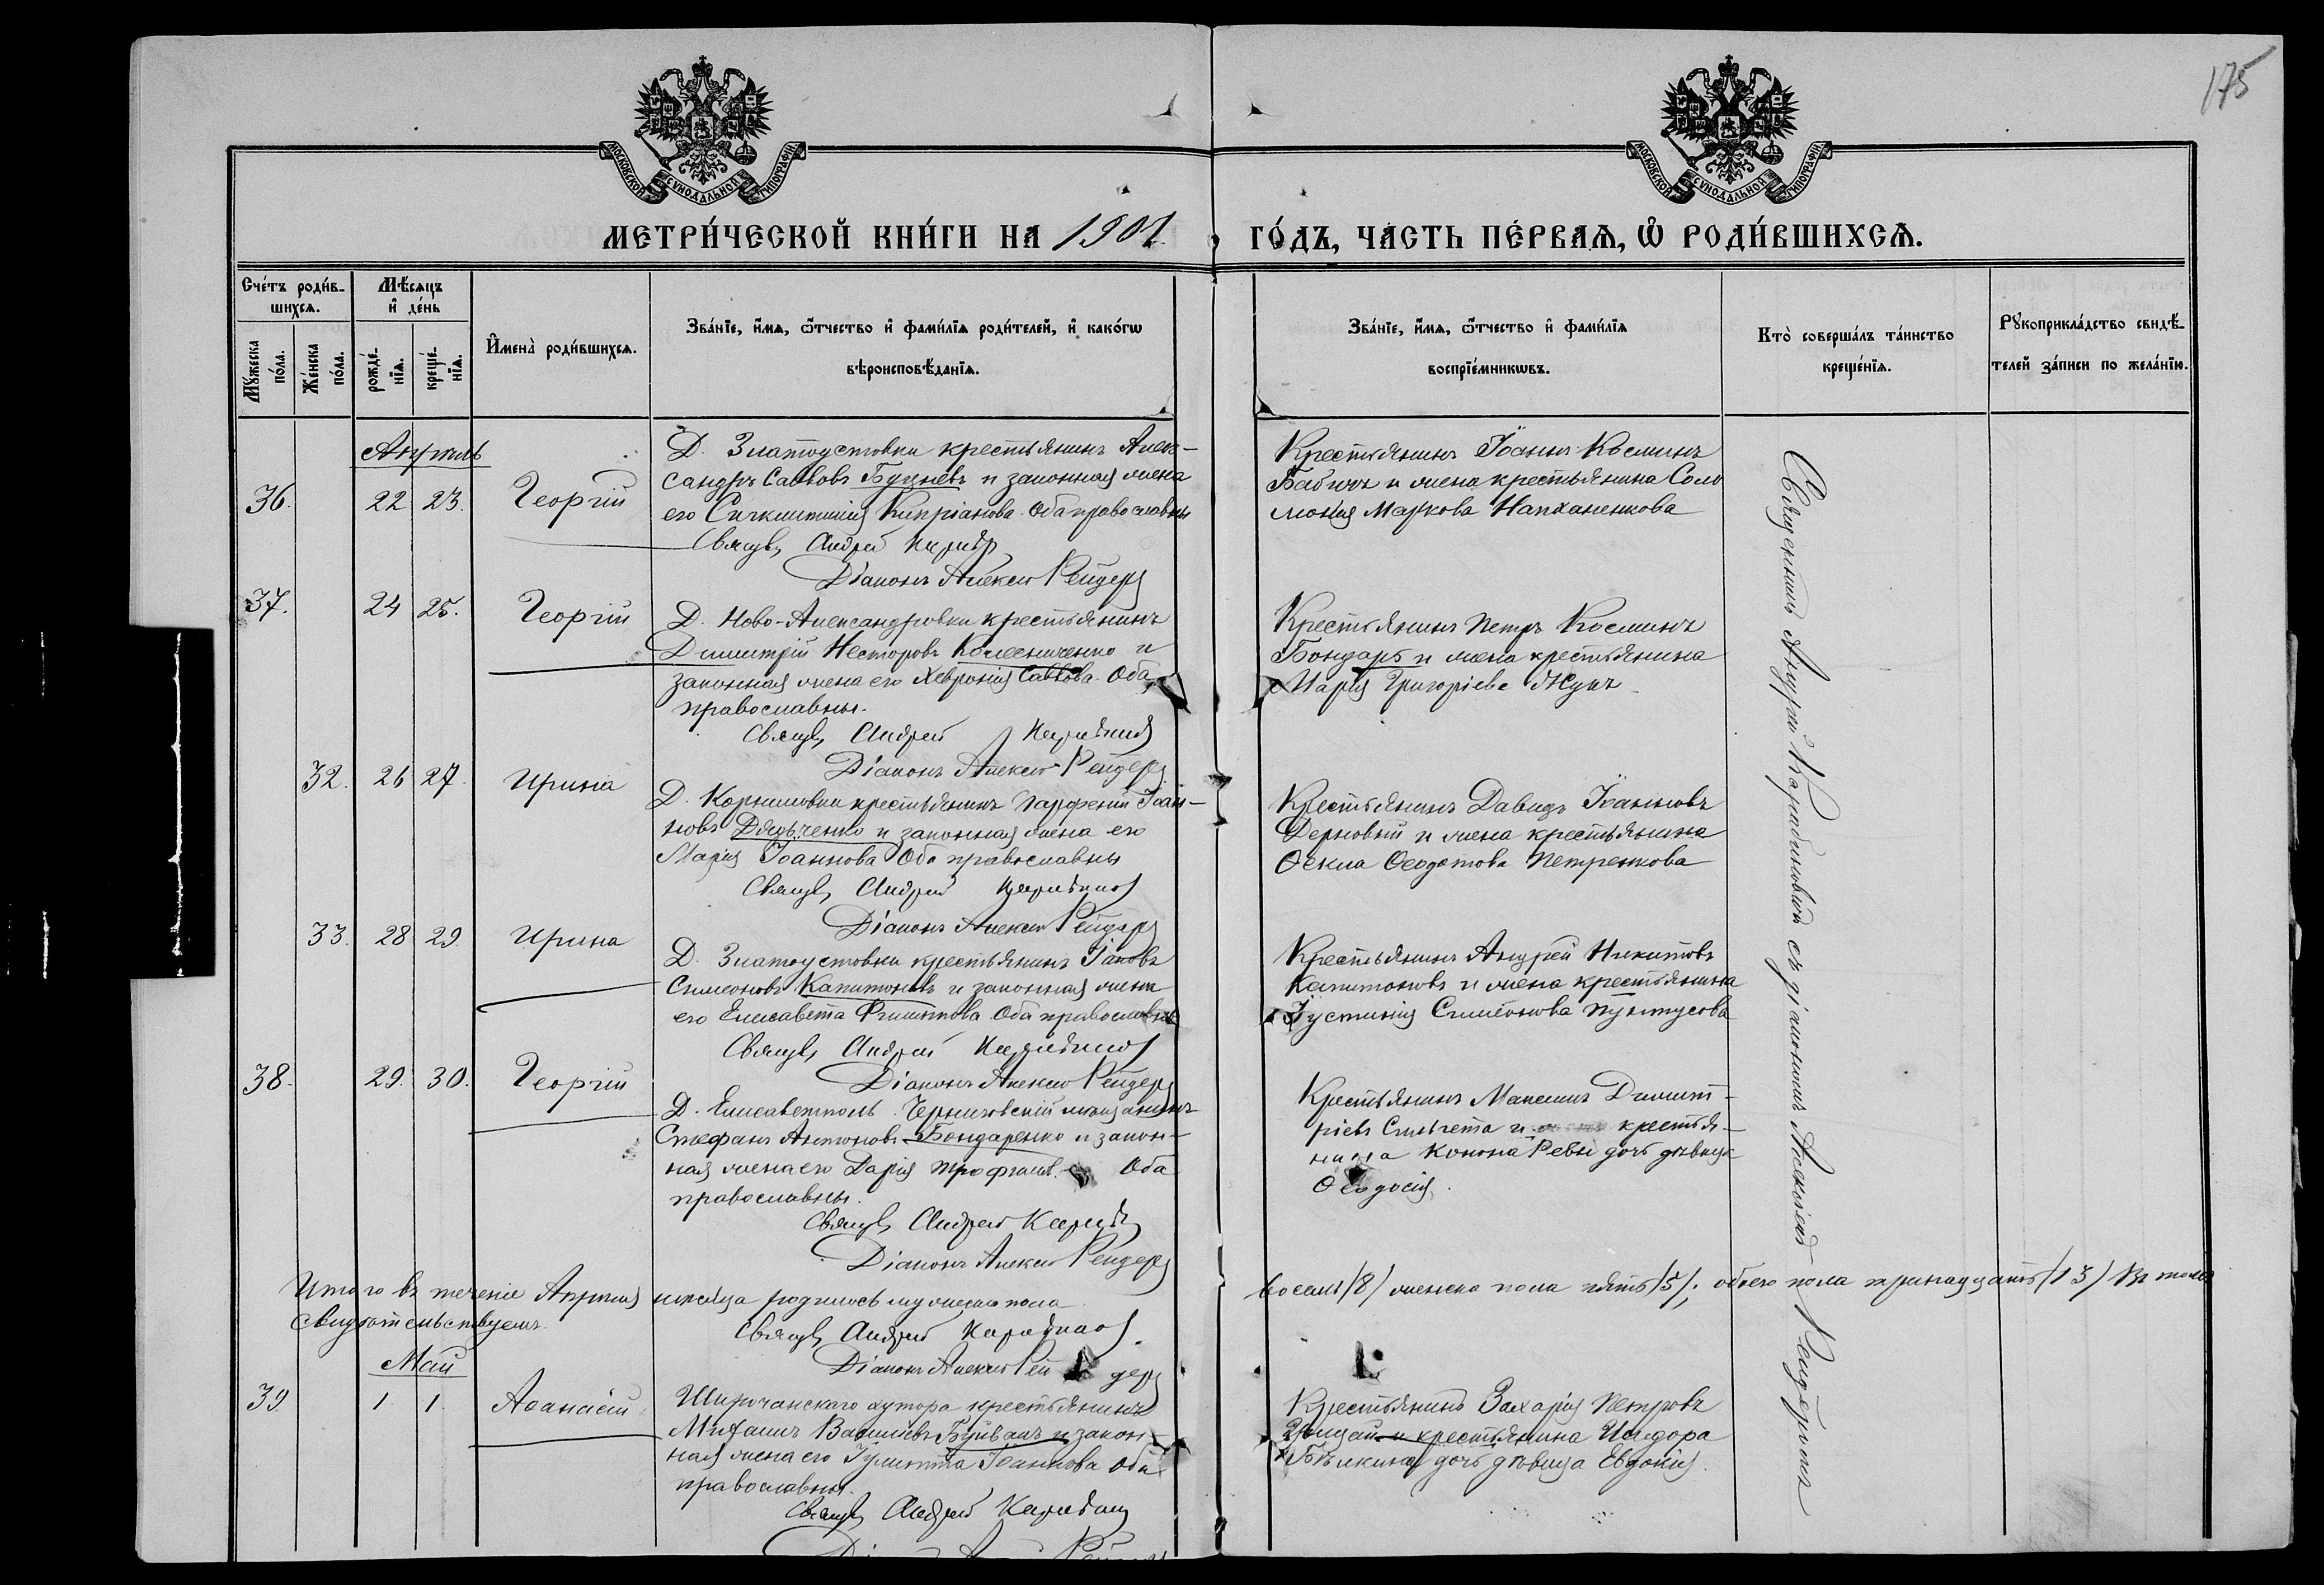 175
МОСКОВСКОЙ СУНОДАЛЬНОЙ ТИПОГРАФІИ
МОСКОВСКОЙ СУНОДАЛЬНОЙ ТИПОГРАФІИ
МЕТРИ́ЧЕСКОЙ КНИ́ГИ НА 1901 ГО́ДЪ, ЧАСТЬ ПЕ́РВАѦ, Ѡ РОДИ́ВШИХСѦ.
Сче́тъ роди́в-
шихсѧ.
Мꙋ́жеска по́ла.
Же́нска по́ла.
Мѣ́сѧцъ
и҆ де́нь
рожде́-
нїѧ.
креще́-
нїѧ.
И҆мена̀ роди́вшихсѧ.
Зва́нїе, и҆́мѧ, ѻ҆́тчество и҆ фами́лїѧ роди́телей, и҆ како́гѡ
вѣроисповѣ́данїѧ.
Зва́нїе, и҆́мѧ, ѻ҆́тчество и҆ фами́лїѧ
воспрїе́мникѡвъ.
Кто̀ соверша́лъ та́инство
креще́нїѧ.
Рꙋкоприкла́дство свидѣ́-
телей за́писи по жела́нїю.
Апрѣль
36. 22 23. Георгій
Д. Златоустовки крестьянинъ Алек-
сандръ Саввовъ Буцневъ и законная жена
его Кипріанова Оба православны
Свящ. Андрей Караб
Діаконъ Алексій Рейдеръ
Крестьянинъ Іоаннъ Косминъ
Бабичъ и жена крестьянина Соло
монія Маркова Напханенкова
37. 24 25. Георгій
Д. Ново-Александровки крестьянинъ
Димитрій Несторовъ Колесниченко и
законная жена его Хевронія Саввова Оба
православны.
Свящ. Андрей Карабино
Діаконъ Алексій Рейдеръ
Крестьянинъ Петръ Косминъ
Бондарь и жена крестьянина
Марія Григоріева Жукъ
32. 26 27. Ирина
Д. Корниловки крестьянинъ Парфеній Іоан-
новъ Дядьченко и законная жена его
Марія Іоаннова Оба православны
Свящ. Андрей Карабино
Діаконъ Алексій Рейдеръ
Крестьянинъ Давидъ Іоанновъ
Дерновый и жена крестьянина
Ѳекла Ѳеодотова Петренкова
33. 28 29 Ирина
Д. Златоустовки крестьянинъ Іаковъ
Симеоновъ Капитоновъ и законная жена
его Елисавета Филиппова Оба православны
Свящ. Андрей Карабино
Діаконъ Алексій Рейдеръ
Крестьянинъ Андрей Никитовъ
Капитоновъ и жена крестьянина
Іустинія Симеонова Пунтусова
38. 29. 30. Георгій
Д. Елисаветполь Черниговскій мѣщанинъ
Стефанъ Антоновъ Бондаренко и закон-
ная жена его Дарія Трофим. Оба
православны.
Свящ. Андрей Караб
Діаконъ Алексій Рейдеръ
Крестьянинъ Максимъ Димит-
ріевъ и крестья-
нина Конона Ревы дочь дѣвица
Ѳеодосія.
Итого въ теченіе Апрѣля мѣсяца родилось мужеска пола восемь /8/ женска пола пять /5/; обоего пола тринадцать /13/ Въ томъ
свидѣтельствуемъ.
Свящ. Андрей Карабино
Діаконъ Алексій Рейдеръ
Май
39 1. 1. Аѳанасій
Широчанскаго хутора крестьянинъ
Михаилъ Василіевъ Буйвалъ и закон-
ная жена его Іулитта Іоаннова Оба
православны.
Свящ. Андрей Карабин
Крестьянинъ Захарія Петровъ
и крестьянина Исидора
Бѣлкина дочь дѣвица Евдокія.
Священникъ Андрей Карабиновичъ съ діакономъ Алексіемъ Рейдеромъ